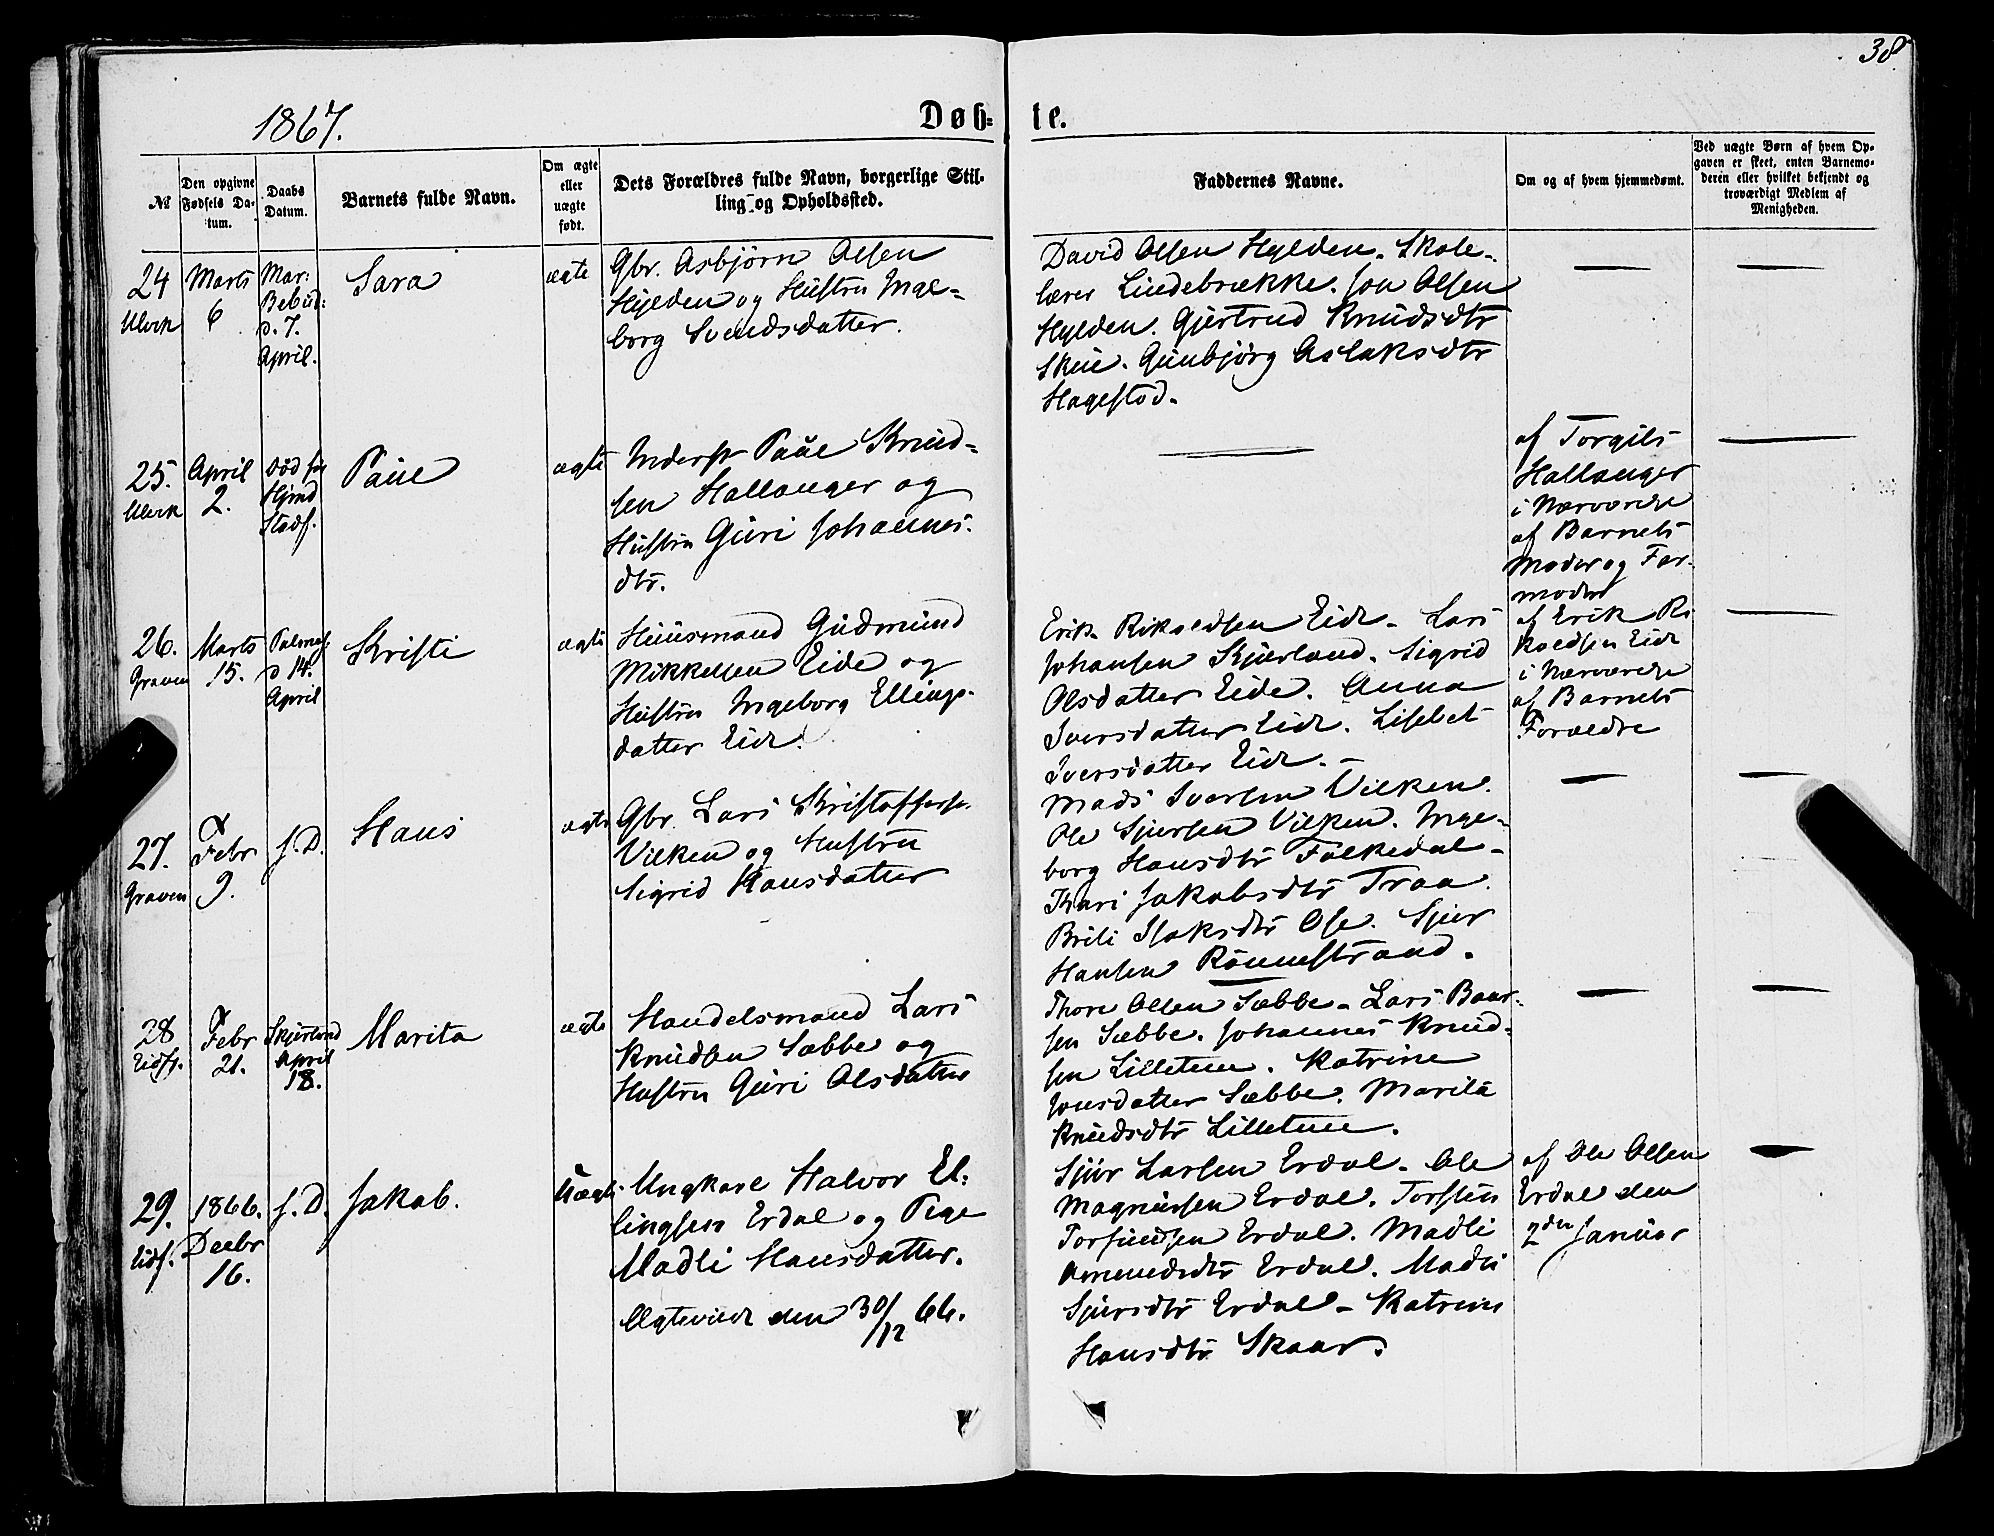 38
1867.
Døb- te.
№
Den opgivne
Fødsels Da-
tum.
Daabs
Datum.
Barnets fulde Navn.
Om ægte
eller
uægte
født.
Dets Forældres fulde Navn, borgerlige Stil-
ling og Opholdssted.
Faddernes Navne.
Om og af hvem hjemmedømt.
Ved uægte Børn af hvem Op-
gaven er skeet, enten Barnemo-
deren eller hvilket bekjendt og
troværdigt Medlem af
Menigheden.
24
Ulvik
Marts
6
Mar:
Bebud:
d. 7.
April.
Sara
ægte
Gbr. Asbjørn Olsen
Hylden og Hustru Inge-
borg Svendsdatter.
David Olsen Hylden. Skole-
lærer Lindebrække. Jon Olsen
Hylden. Gjertrud Knudsdtr
Skeie. Gunbjørg Aslaksdtr
Hagestod.
25.
Ulvik
April
2.
Død før
Hjmd
Stadf.
Paul
ægte
Inderst Paul Knud-
sen Hallanger og
Hustru Guri Johannes-
dtr.
af Torgils
Hallanger
i Nærværelse
af Barnets
Moder og Far-
moder
26.
Graven
Marts
15.
Palmes.
d 14.
April
Kristi
ægte
Huusmand Gudmund
Mikkelsen Eide og
Hustru Ingeborg Ellings-
datter Eide.
Erik Rikoldsen Eide. Lars
Johansen Kjærland. Sigrid
Olsdatter Eide. Anna
Iversdatter Eide. Lisbet
Iversdatter Eide.
af Erik Ri
koldsen Eide
i Nærværelse
af Barnets
Forældre
27.
Graven
Febr
9.
s. D.
Hans
ægte
Gbr. Lars Kristoffersen
Vilken og Hustru
Sigrid Hansdatter
Mads Iversen Vilken.
Ole Sjursen Vilken. Inge-
borg Hansdtr Folkedal.
Kari Jakobsdtr Traa.
Brite Isaksdtr Ose. Sjur
Hansen Rønnestrand.
28
Eidfj.
Febr
21.
Skjertorsd
April
18.
Marita
ægte
Handelsmand Lars
Knudsen Sæbbe og
Hustru Guri Olsdatter
Thore Olsen Sæbbe. Lars Baar-
sen Sæbbe. Johannes Knud-
sen Lilletun. Katrine
Jonsdatter Sæbbe. Marita
Knudsdtr Lilletun.
29.
Eidf.
1866.
Decbr
16.
s. D.
Jakob.
Uægte
Ungkarl Halvor El-
lingsen Erdal og Pige
Madli Hansdatter.
Ægteviet den 30/12 66.
Sjur Larsen Erdal. Ole
Magnussen Erdal. Torstein
Torfindsen Erdal. Madli
Amundsdtr Erdal. Madli
Sjursdtr Erdal. Katrine
Hansdtr Skaar.
af Ole Olsen
Erdal den
2den Januar